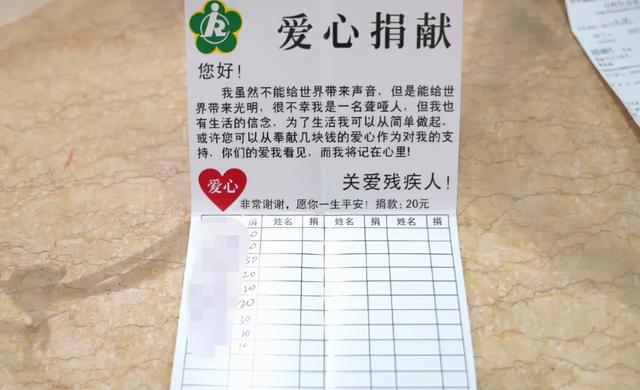 爱心捐献
您好！
我虽然不能给世界带来声音，但是能给世
界带来光明，很不幸我是一名聋哑人，但我也
有生活的信念，为了生活我可以从简单做起，
或许您可以从奉献几块钱的爱心作为对我的支
持，你们的爱我看见，而我将记在心里！
爱心
关爱残疾人！
非常谢谢，愿你一生平安！捐款：20元
捐 姓名 捐 姓名 捐 姓名 捐
50
20
20
20
30
20
10